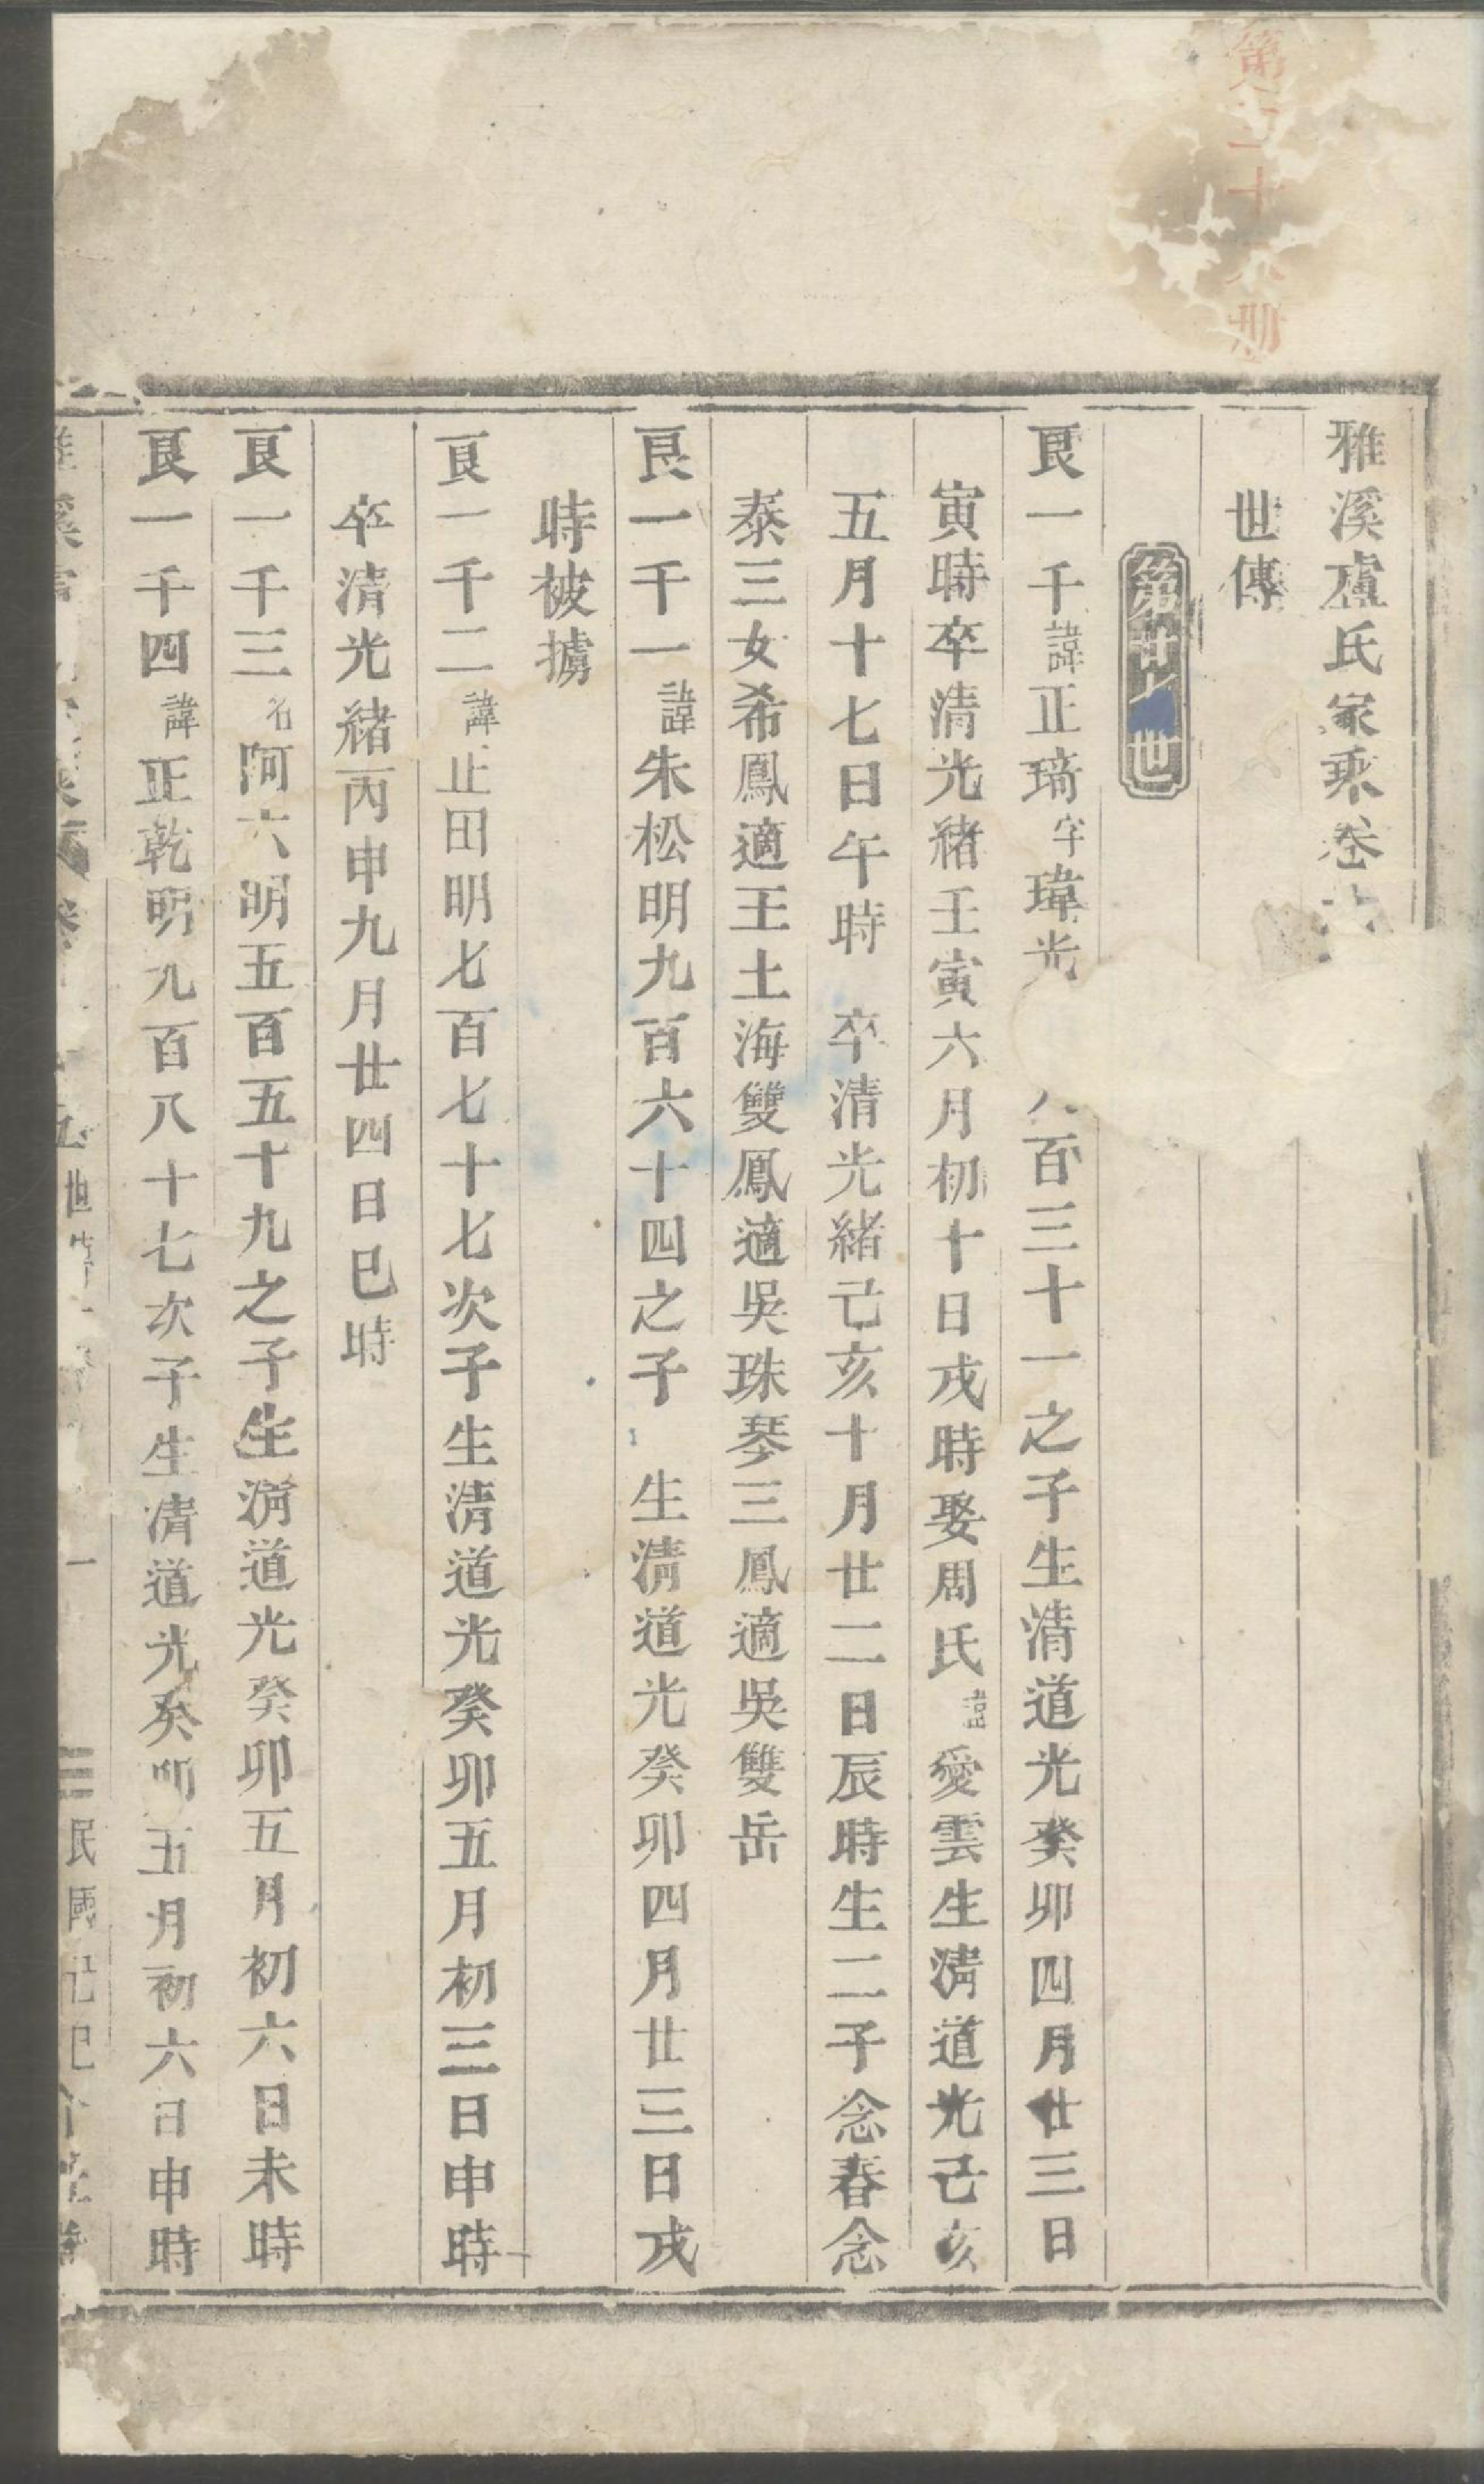 雅溪盧氏家乘卷
世傳
第廿七世
良一千諱正琦字瑋光百三十一之子生清道光癸卯四月廿三日
寅時卒清光緒壬寅六月初十日戌時娶周氏諱愛雲生清道光己亥
五月十七日午時 卒清光緒己亥十月廿二日辰時生二子念春念
泰三女希鳳適王土海雙鳳適吳珠琴三鳳適吳雙岳
良一千一諱朱松明九百六十四之子 生清道光癸卯四月廿三日戌
時被擄
良一千二諱正田明七百七十七次子生清道光癸卯五月初三日申時
卒清光緒丙申九月廿四日巳時
良一千三名阿六明五百五十九之子生清道光癸卯五月初六日未時
良一千四諱正乾明九百八十七次子生清道光癸卯五月初六日申時
世 一 民國